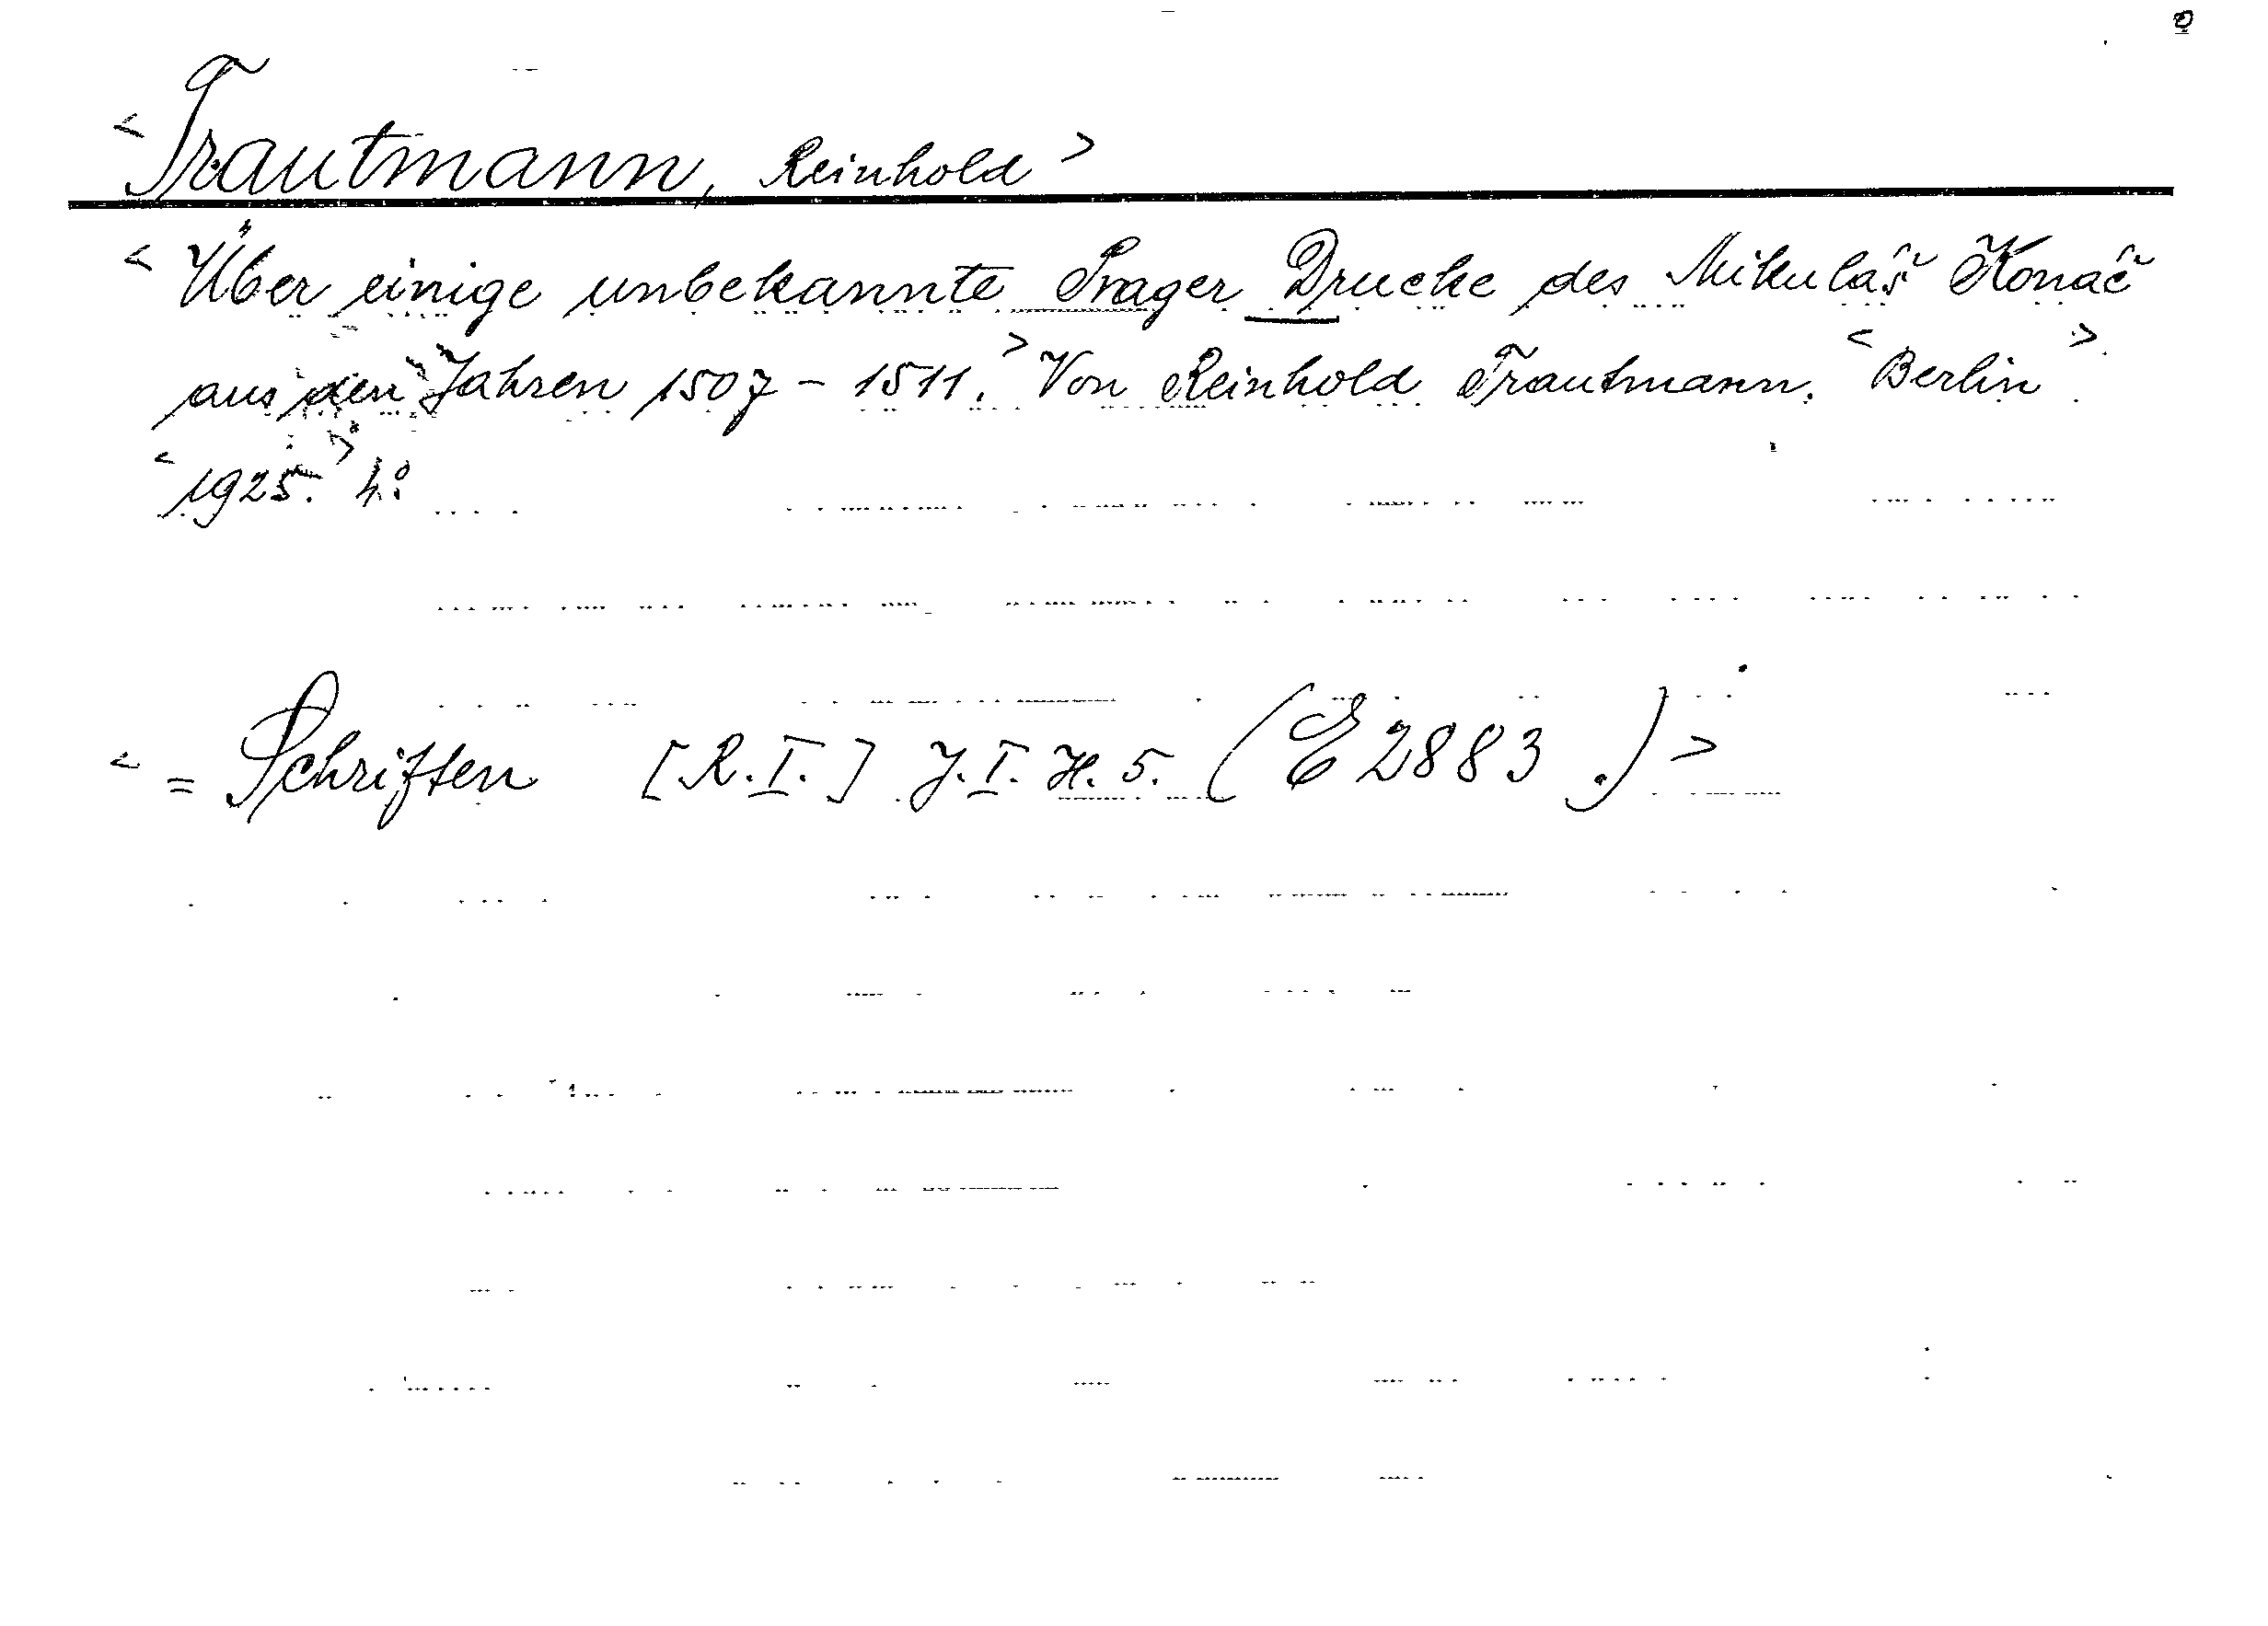 <Trautmann, Reinhold>
<Über einige unbekannte Prager Drucke des Mikuláš Konáč
aus den Jahren 1507 - 1511.> Von Reinhold Trautmann. <Berlin>
<1925.> 4°.
<= Schriften [R.I.] J.I. H. 5. (E 2883.)>